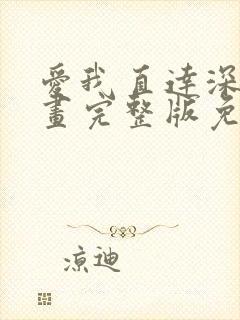 愛我直達深
畫完整版免
涼迪